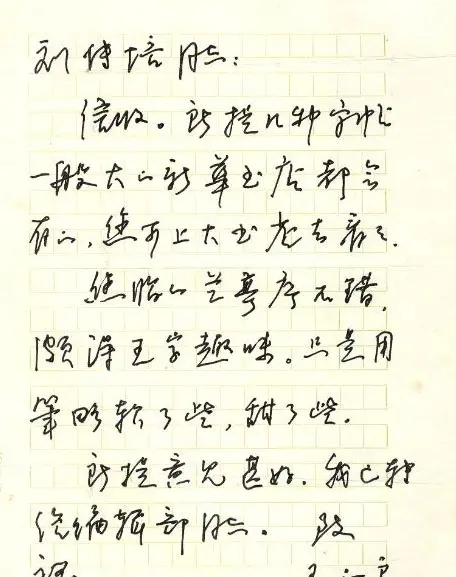 刘传培同志:
信收。所提几种字帖
一般大的新华书店都会
有的,您可上大书店去看看.
您临的兰亭序不错,
颇得王字趣味。只是用
笔略软了些,甜了些.
所提意见甚好.我已转
给编辑部同志。 致